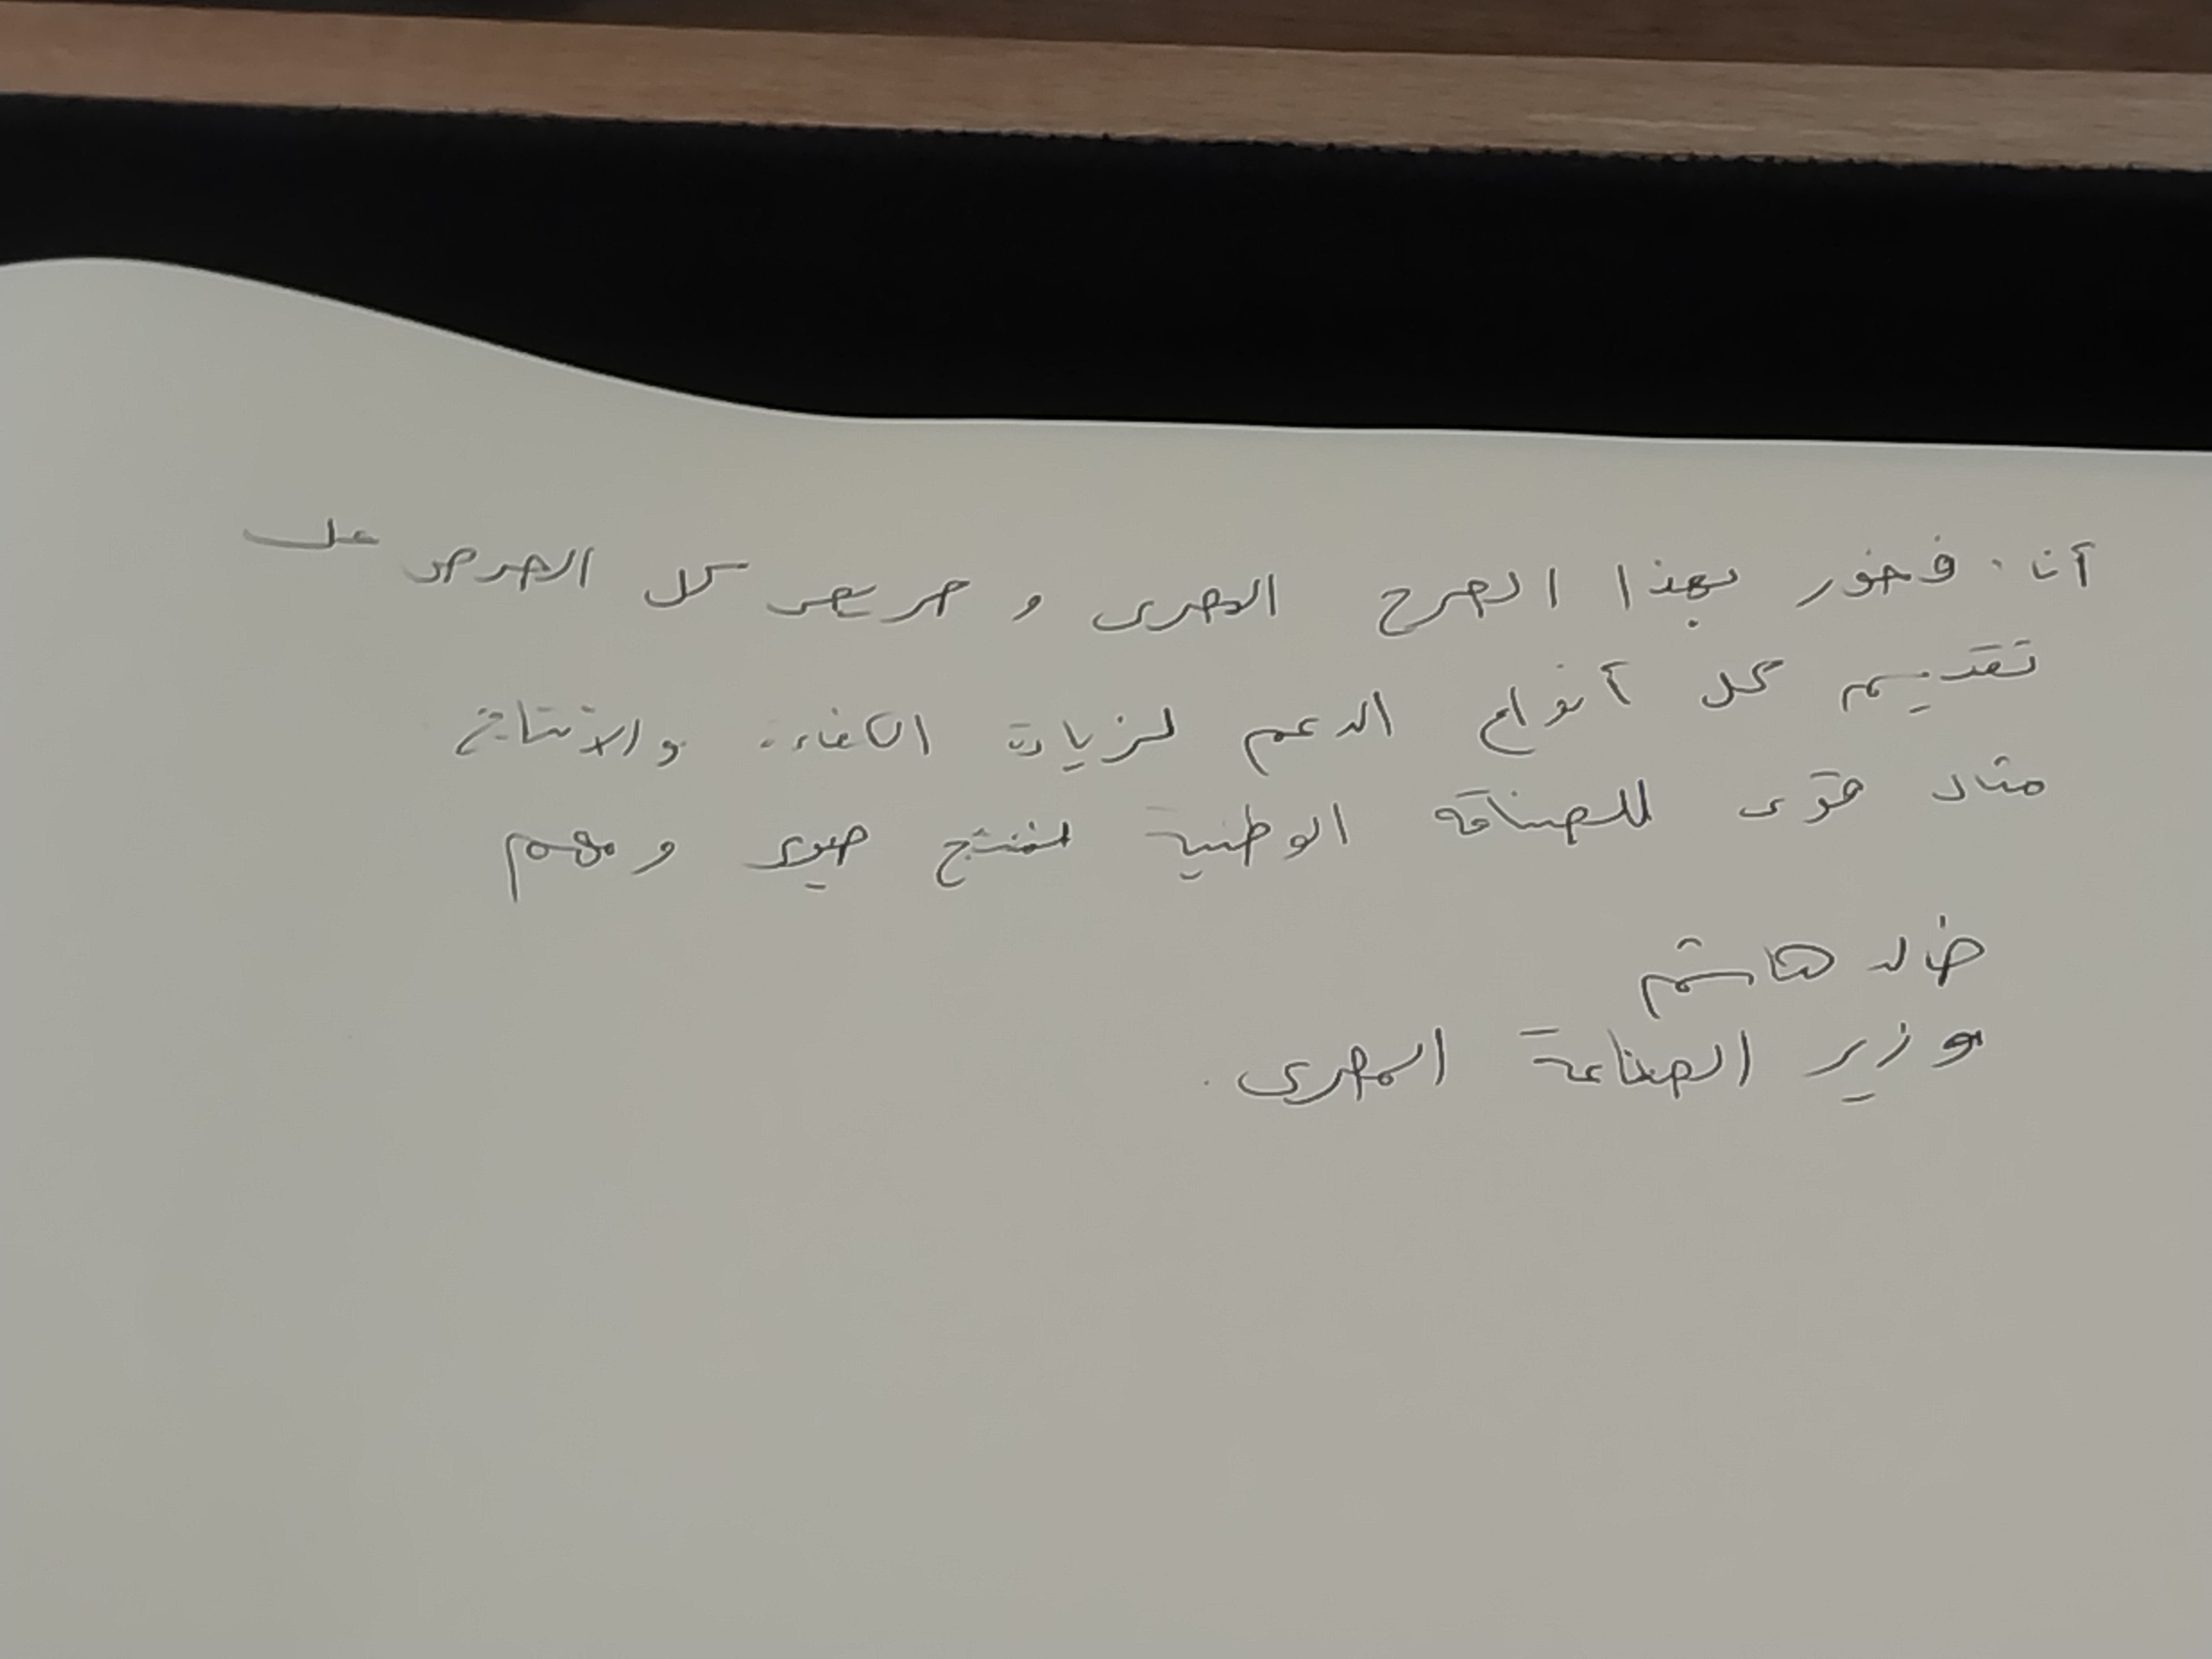 أنا فخور بهذا الصرح المصرى و حريص كل الحرص على
تقديم كل أنواع الدعم لزيادة الكفاءة والانتاج
مثال قوى للصناعة الوطنية لمنتج حيوى ومهم
خالد هاشم
وزير الصناعة المصرى.